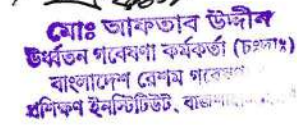 মোঃ আফতাব উদ্দীন
উর্ধ্বতন গবেষণা কর্মকর্তা (চঃদাঃ)
বাংলাদেশ রেশম গবেষণা
প্রশিক্ষণ ইনস্টিটিউট,